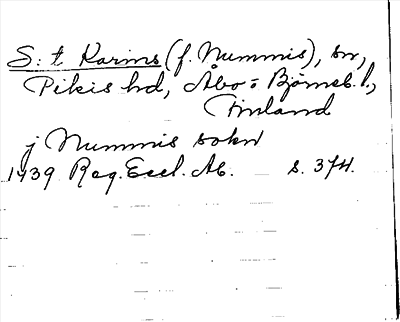 S:t Karins (f. Nummis), sn,
Pikis hd, Åbo= Björneb. l.,
Finland
j Nummis sokn
1439 Reg. Eccl. Ab. s. 374.